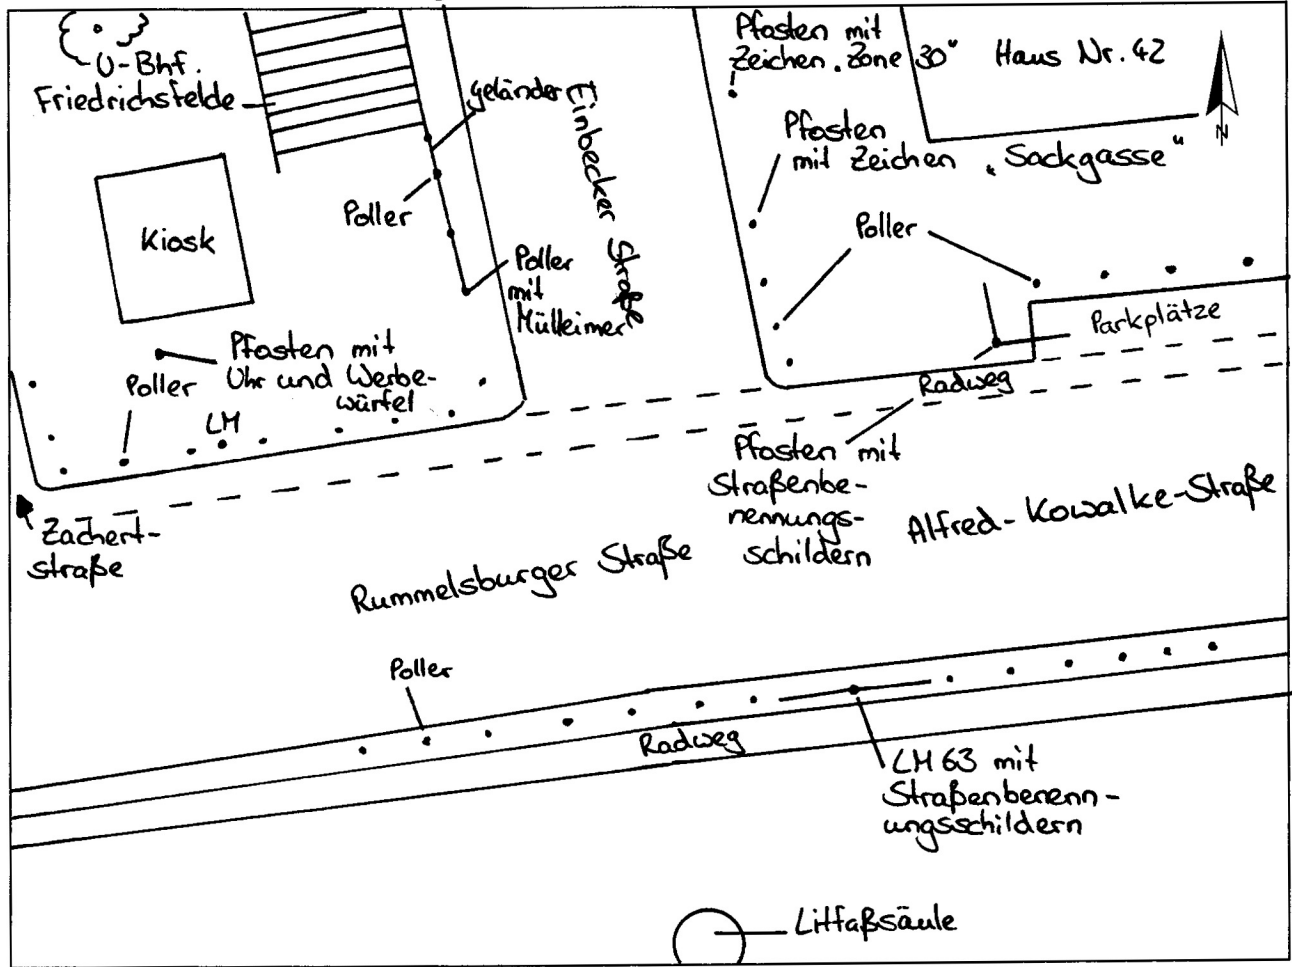 U-Bhf.
Friedrichsfelde
Geländer
Einbecker Straße
Pfosten mit
Zeichen „Zone 30"
Haus Nr. 42
N
Pfosten
mit Zeichen „Sackgasse"
Kiosk
Poller
Poller
mit
Mülleimer
Poller
Parkplätze
Radweg
Pfosten mit
Uhr und Werbe-
würfel
Poller
LM
Zachert-
straße
Pfosten mit
Straßenbe-
nennungs-
schildern
Rummelsburger Straße
Alfred-Kowalke-Straße
Poller
Radweg
LM 63 mit
Straßenbenenn-
ungsschildern
Litfaßsäule